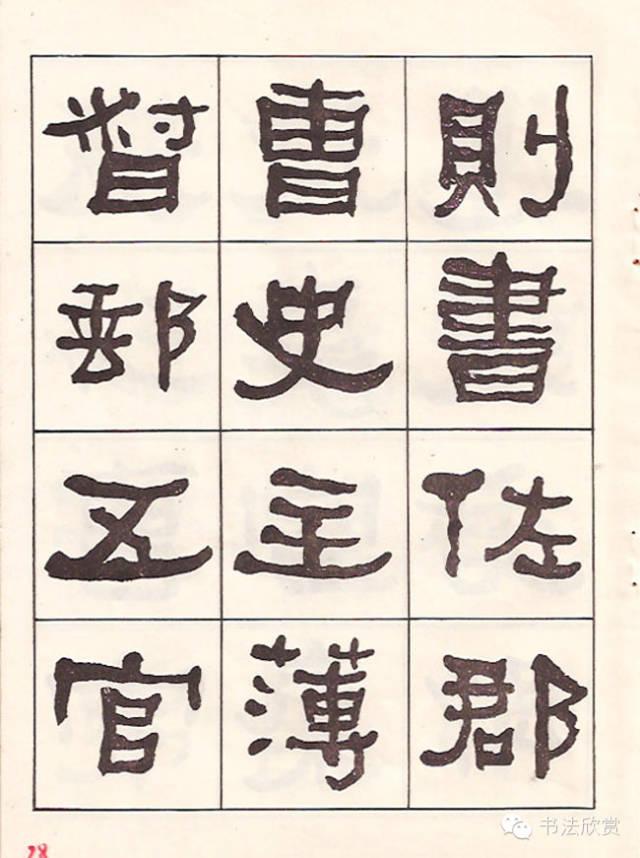 則書佐郡
曹史主薄
督郵五官
28
书法欣赏